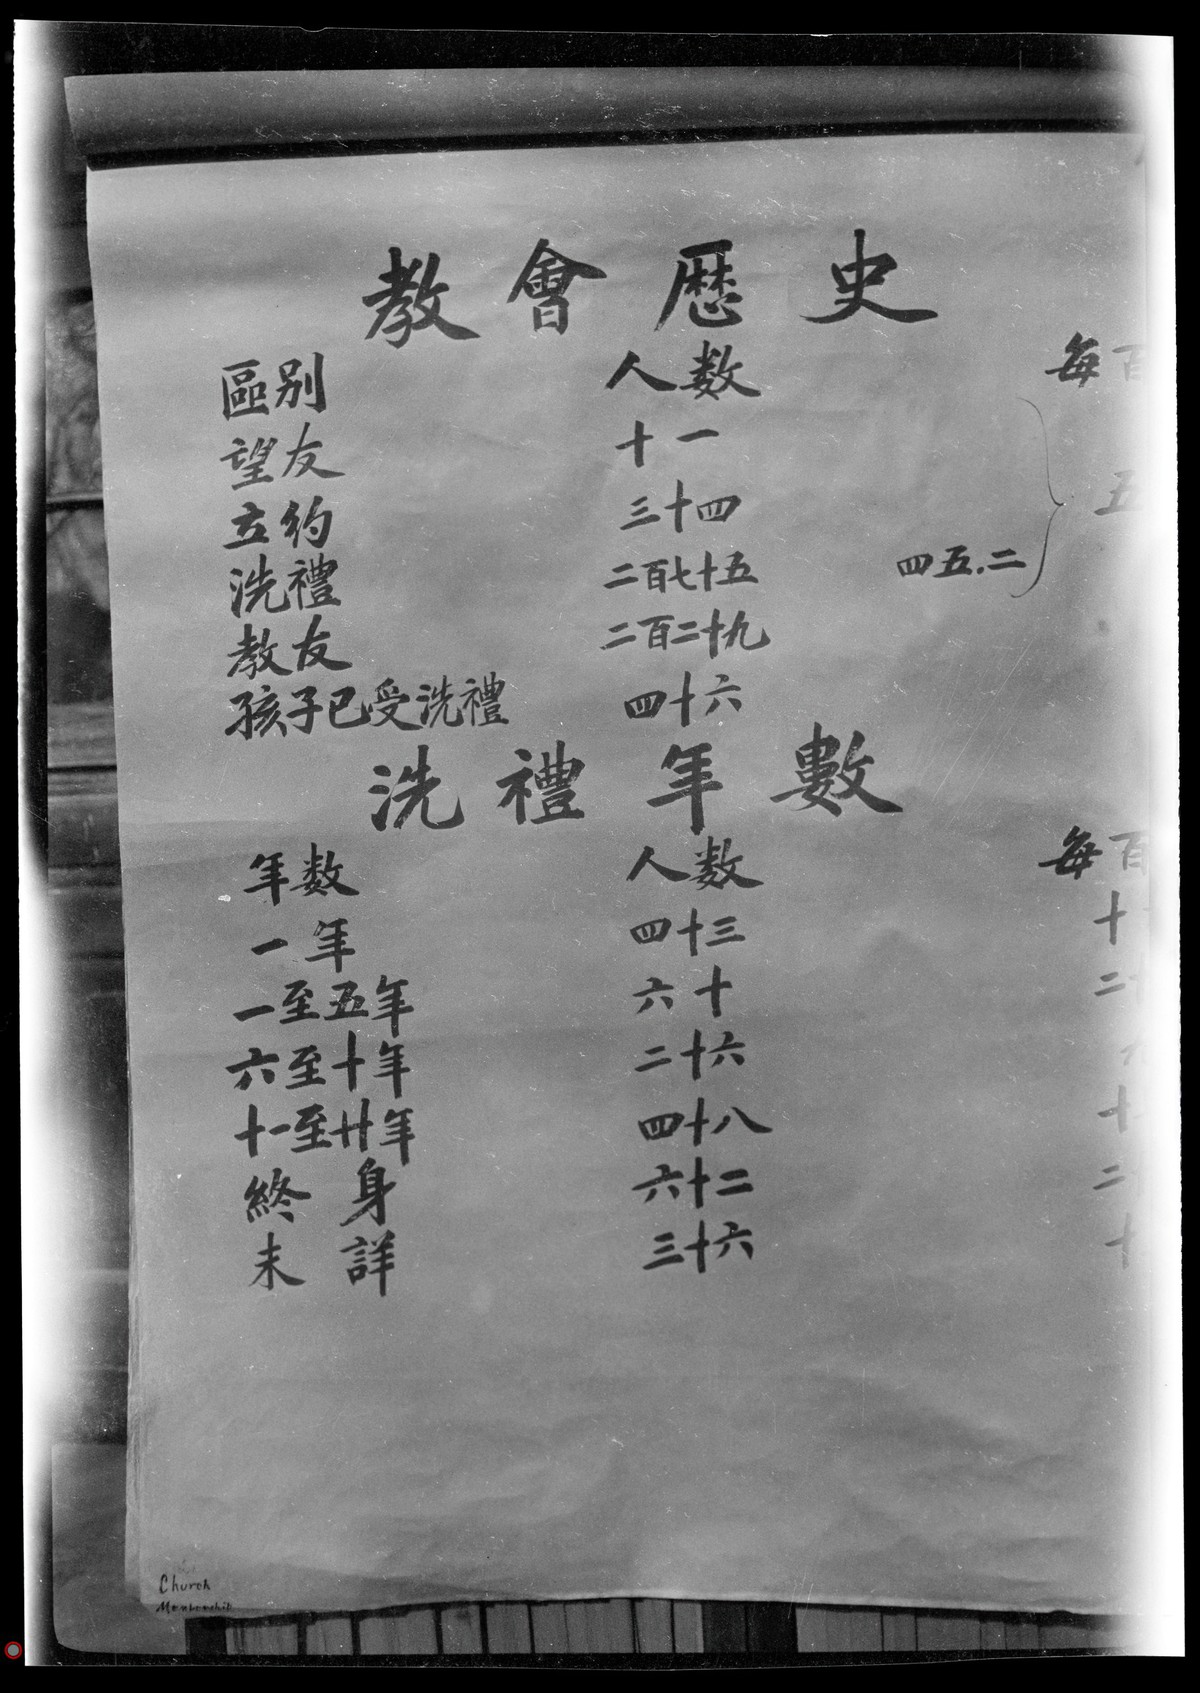 教會歷史
區别 人数 每百
望友 十一
立約 三十四 五
洗禮 二百七十五 四五.二
教友 二百二十九
孩子已受洗禮 四十六
洗禮年數
年数 人数 每百
一年 四十三 十
一至五年 六十 二
六至十年 二十六
十一至廿年 四十八 十
終身 六十二 二
未詳 三十六 十
Church
Membership